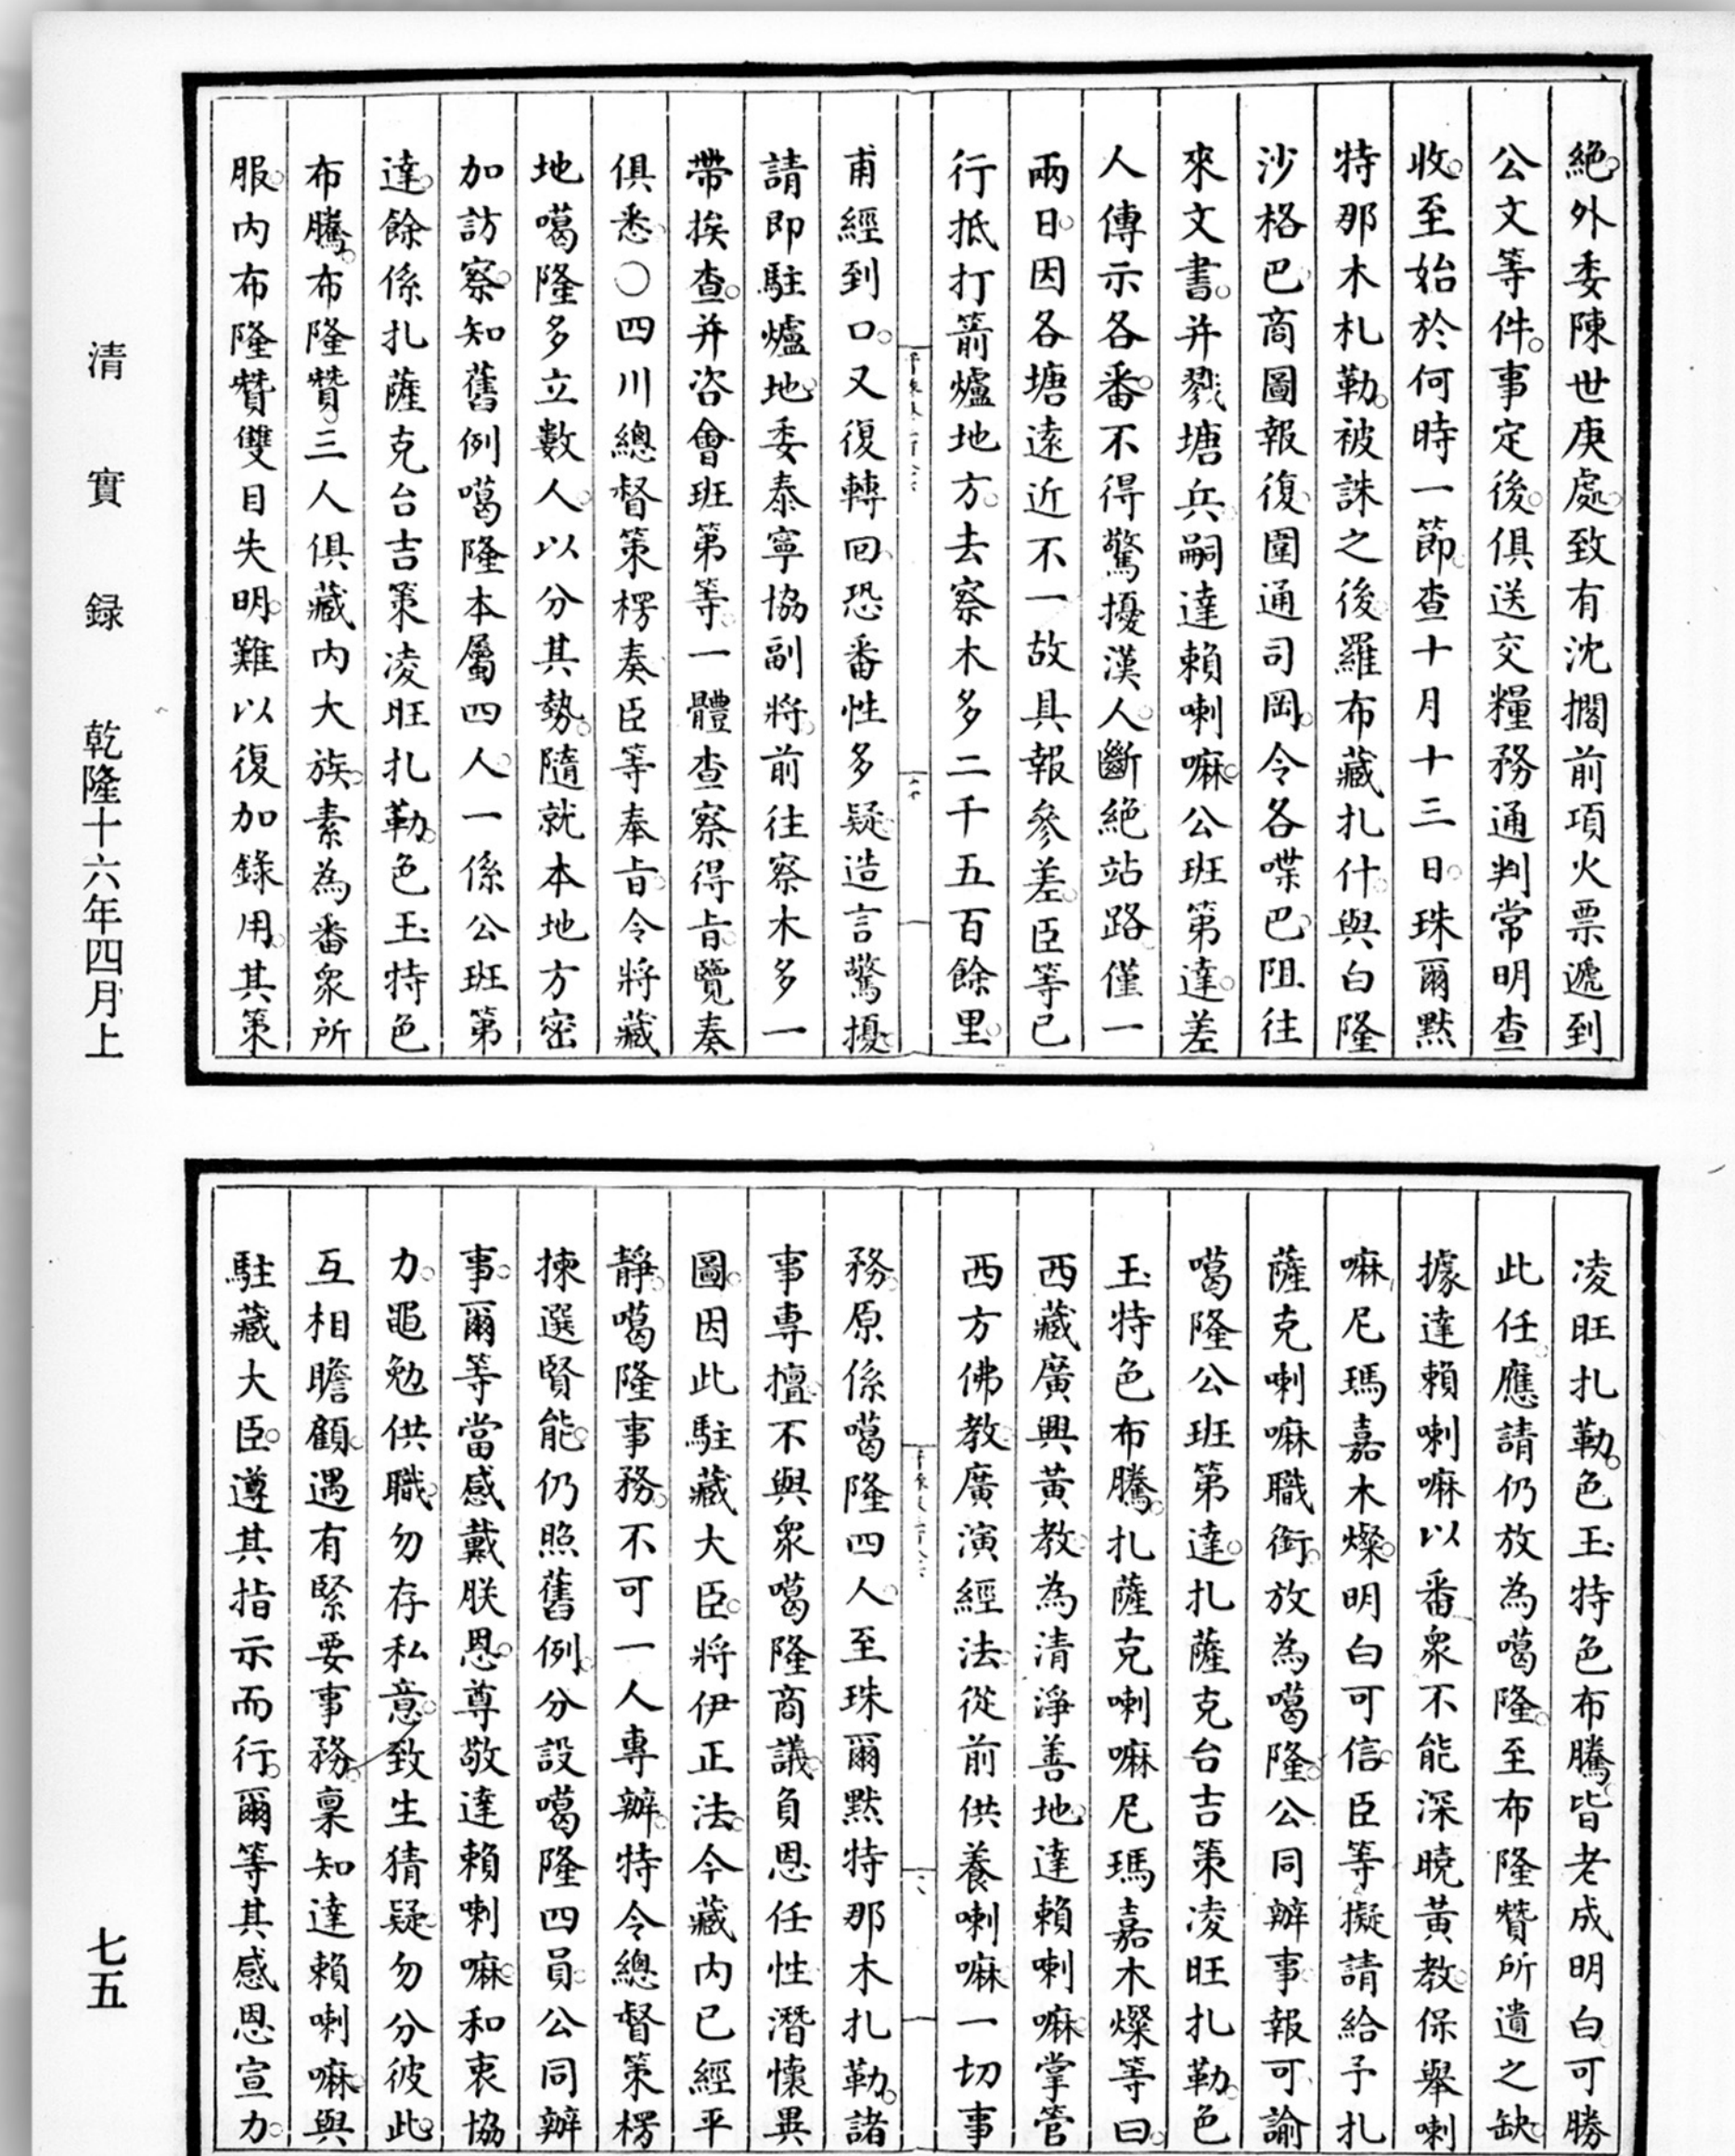 絕。外委陳世庚處。致有沈擱前項火票遞到
公文等件。事定後。俱送交糧務通判常明查
收。至始於何時一節。查十月十三日。珠爾默
特那木札勒。被誅之後。羅布藏扎什。與白隆
沙格巴商圖報復。圍通司岡。令各喋巴。阻往
來文書。并戮塘兵。嗣達賴喇嘛。公班第達。差
人傳示各番。不得驚擾漢人。斷絕站路。僅一
兩日。因各塘遠近不一。故具報參差。臣等已
行抵打箭爐地方。去察木多二千五百餘里。
甫經到口。又復轉回。恐番性多疑。造言驚擾。
請即駐爐地。委泰寧協副將。前往察木多一
帶挨查。并咨會班第等。一體查察。得旨。覽奏
俱悉。○四川總督策楞奏。臣等奉旨。令將藏
地噶隆多立數人。以分其勢。隨就本地方密
加訪察。知舊例噶隆本屬四人。一係公班第
達。餘係扎薩克台吉策凌旺扎勒。色玉特色
布騰。布隆贊。三人俱藏內大族。素為番眾所
服。內布隆贊雙目失明。難以復加錄用。其策
凌旺扎勒。色玉特色布騰。皆老成明白。可勝
此任。應請仍放為噶隆。至布隆贊所遺之缺。
據達賴喇嘛以番眾不能深曉黃教。保舉喇
嘛尼瑪嘉木燦。明白可信。臣等擬請給予扎
薩克喇嘛職銜。放為噶隆。公同辦事。報可。諭
噶隆公班第達。扎薩克台吉策凌旺扎勒。色
玉特色布騰。扎薩克喇嘛尼瑪嘉木燦等曰。
西藏廣興黃教。為清淨善地。達賴喇嘛。掌管
西方佛教。廣演經法。從前供養喇嘛一切事
務。原係噶隆四人。至珠爾默特那木扎勒。諸
事專擅。不與眾噶隆商議。負恩任性。潛懷異
圖。因此駐藏大臣。將伊正法。今藏內已經平
靜。噶隆事務。不可一人專辦。特令總督策楞
揀選賢能。仍照舊例。分設噶隆四員。公同辦
事。爾等當感戴朕恩。尊敬達賴喇嘛。和衷協
力。黽勉供職。勿存私意。致生猜疑。勿分彼此。
互相瞻顧。遇有緊要事務。稟知達賴喇嘛。與
駐藏大臣。遵其指示而行。爾等其感恩宣力。
清實錄 乾隆十六年四月上
七五